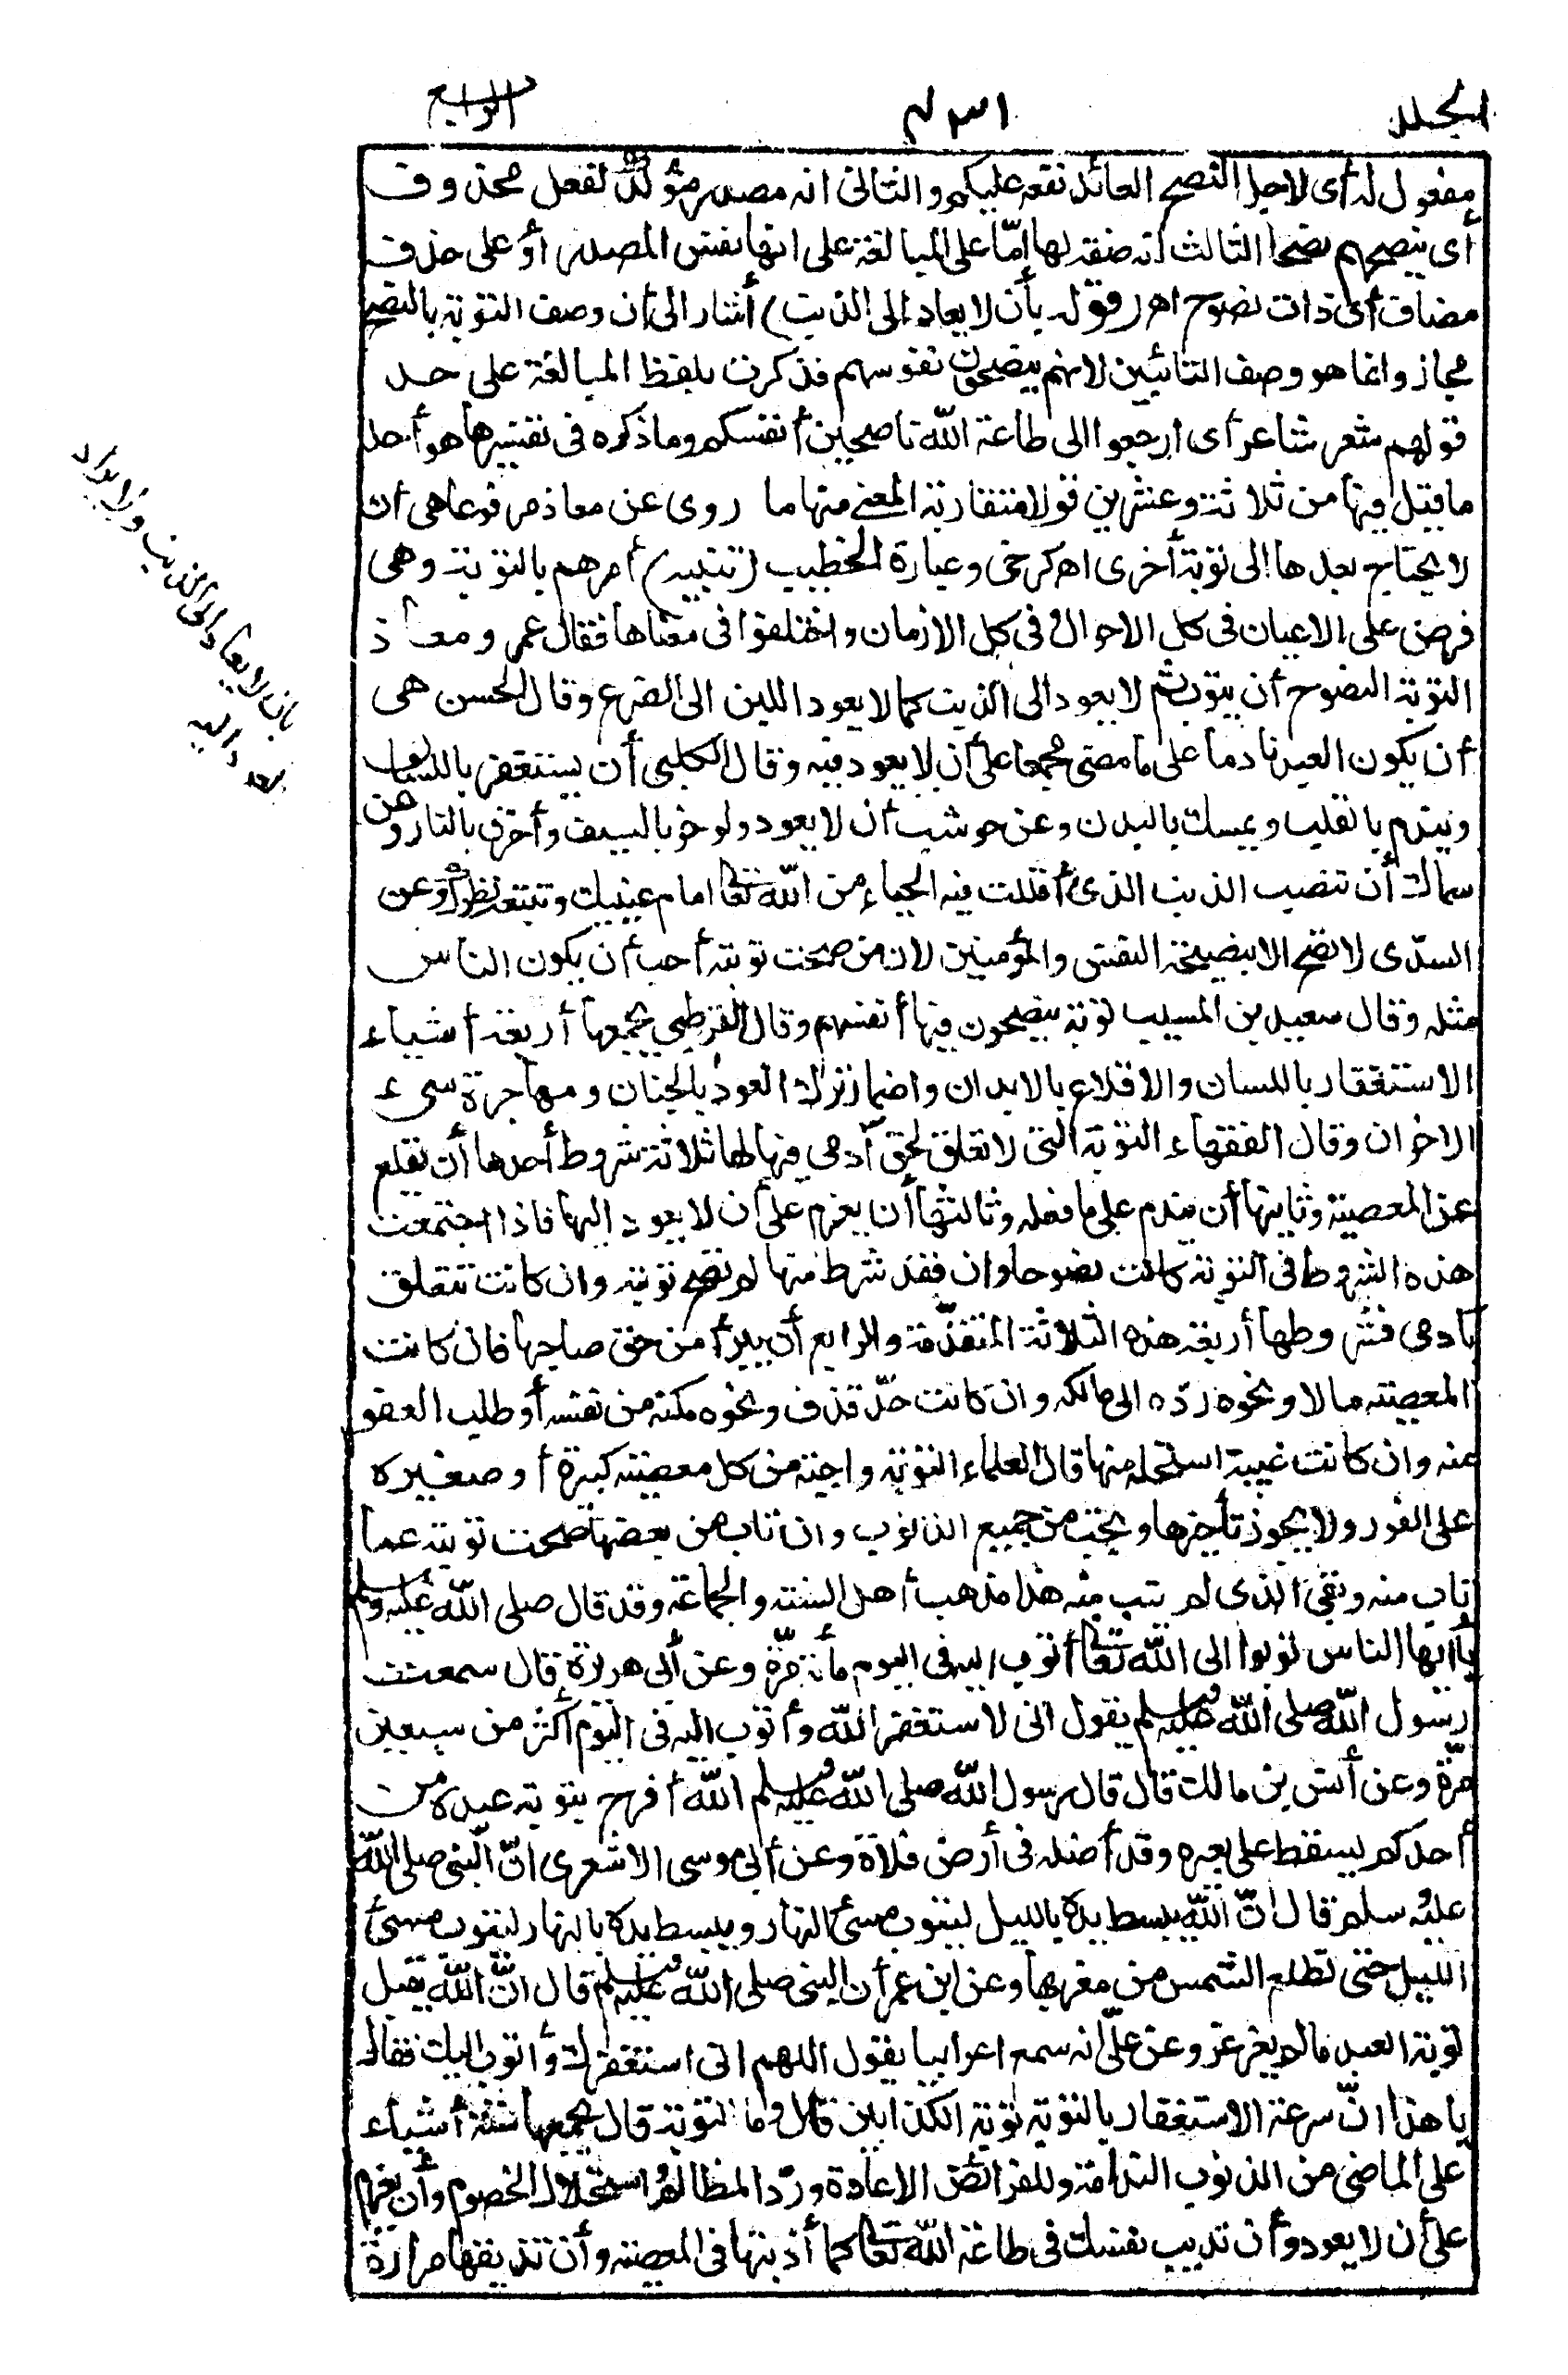 المجلد
٤٣١
الرابع
مفعول له أى لاجل النصح العائد نفعه عليكم والثانى انه مصدر مؤكد لفعل محذوف
أى ينصحهم نصحا الثالث انه صفة لها إمّا على المبالغة على انها نفس المصدر أو على حذف
مضاف أى ذات نصوح اهـ (قوله بأن لا يعاد الى الذنب) أشار الى أن وصف التوبة بالنصح
مجاز وانما هو وصف التائبين لانهم ينصحون نفوسهم فذكرت بلفظ المبالغة على حد
قولهم شعر شاعر أى ارجعوا الى طاعة الله ناصحين أنفسكم وما ذكره فى تفسيرها هو أحد
ما قيل فيها من ثلاثة وعشرين قولا متقاربة المعنى منها ما روى عن معاذ مرفوعا هى ان
لا يحتاج بعدها الى توبة أخرى اهـ كرخى وعبارة الخطيب (تنبيه) أمرهم بالتوبة وهى
فرض على الاعيان فى كل الاحوال وفى كل الازمان واختلفوا فى معناها فقال عمر ومعاذ
التوبة النصوح أن يتوب ثم لا يعود الى الذنب كما لا يعود اللبن الى الضرع وقال الحسن هى
أن يكون العبد نادما على ما مضى مجمعا على أن لا يعود فيه وقال الكلبى أن يستغفر باللسان
ويندم بالقلب ويمسك بالبدن وعن حوشب أن لا يعود ولو حز بالسيف وأحرق بالنار وعن
سماك أن تنصب الذنب الذى أقللت فيه الحياء من الله تعالى امام عينيك وتتبعه نظرك وعن
السدّى لا تصح الا بنصيحة النفس والمؤمنين لان من صحت توبته أحب أن يكون الناس
مثله وقال سعيد بن المسيب توبة ينصحون فيها أنفسهم وقال القرظى يجمعها أربعة أشياء
الاستغفار باللسان والاقلاع بالابدان واضمار ترك العود بالجنان ومهاجرة سىء
الاخوان وقال الفقهاء التوبة التى لا تعلق لحق آدمى فيها لها ثلاثة شروط أحدها أن يقلع
عن المعصية وثانيها أن يندم على ما فعله وثالثها أن يعزم على أن لا يعود اليها فاذا اجتمعت
هذه الشروط فى التوبة كانت نصوحا وان فقد شرط منها لم تصح توبته وان كانت تتعلق
بآدمى فشروطها أربعة هذه الثلاثة المتقدّمة والرابع أن يبرأ من حق صاحبها فان كانت
المعصية مالا ونحوه ردّه الى مالكه وان كانت حدّ قذف ونحوه مكنه من نفسه أو طلب العفو
عنه وان كانت غيبة استحله منها قال العلماء التوبة واجبة من كل معصية كبيرة أو صغيرة
على الفور ولا يجوز تأخيرها ويجب من جميع الذنوب وان تاب من بعضها صحت توبته عما
تاب منه وبقى الذى لم يتب منه هذا مذهب أهل السنة والجماعة وقد قال صلى الله عليه وسلم
يا أيها الناس توبوا الى الله تعالى أتوب اليه فى اليوم مائة مرّة وعن أبى هريرة قال سمعت
رسول الله صلى الله عليه وسلم يقول انى لاستغفر الله وأتوب اليه فى اليوم أكثر من سبعين
مرّة وعن أنس بن مالك قال قال رسول الله صلى الله عليه وسلم الله أفرح بتوبة عبده من
أحدكم يسقط على بعيره وقد أضله فى أرض فلاة وعن أبى موسى الاشعرى انّ النبى صلى الله
عليه وسلم قال انّ الله يبسط يده بالليل ليتوب مسىء النهار ويبسط يده بالنهار ليتوب مسىء
الليل حتى تطلع الشمس من مغربها وعن ابن عمر أن النبى صلى الله عليه وسلم قال انّ الله يقبل
توبة العبد ما لم يغرغر وعن علىّ انه سمع اعرابيا يقول اللهم انى استغفرك وأتوب اليك فقال
يا هذا انّ سرعة الاستغفار بالتوبة توبة الكذابين قال وما التوبة قال يجمعها ستة أشياء
على الماضى من الذنوب الندامة وللفرائض الاعادة وردّ المظالم واستحلال الخصوم وأن يعزم
على أن لا يعود وأن تذيب نفسك فى طاعة الله تعالى كما أذبتها فى المعصية وأن تذيقها مرارة
بان لا يعاد الى الذنب ولا يراد
العود اليه